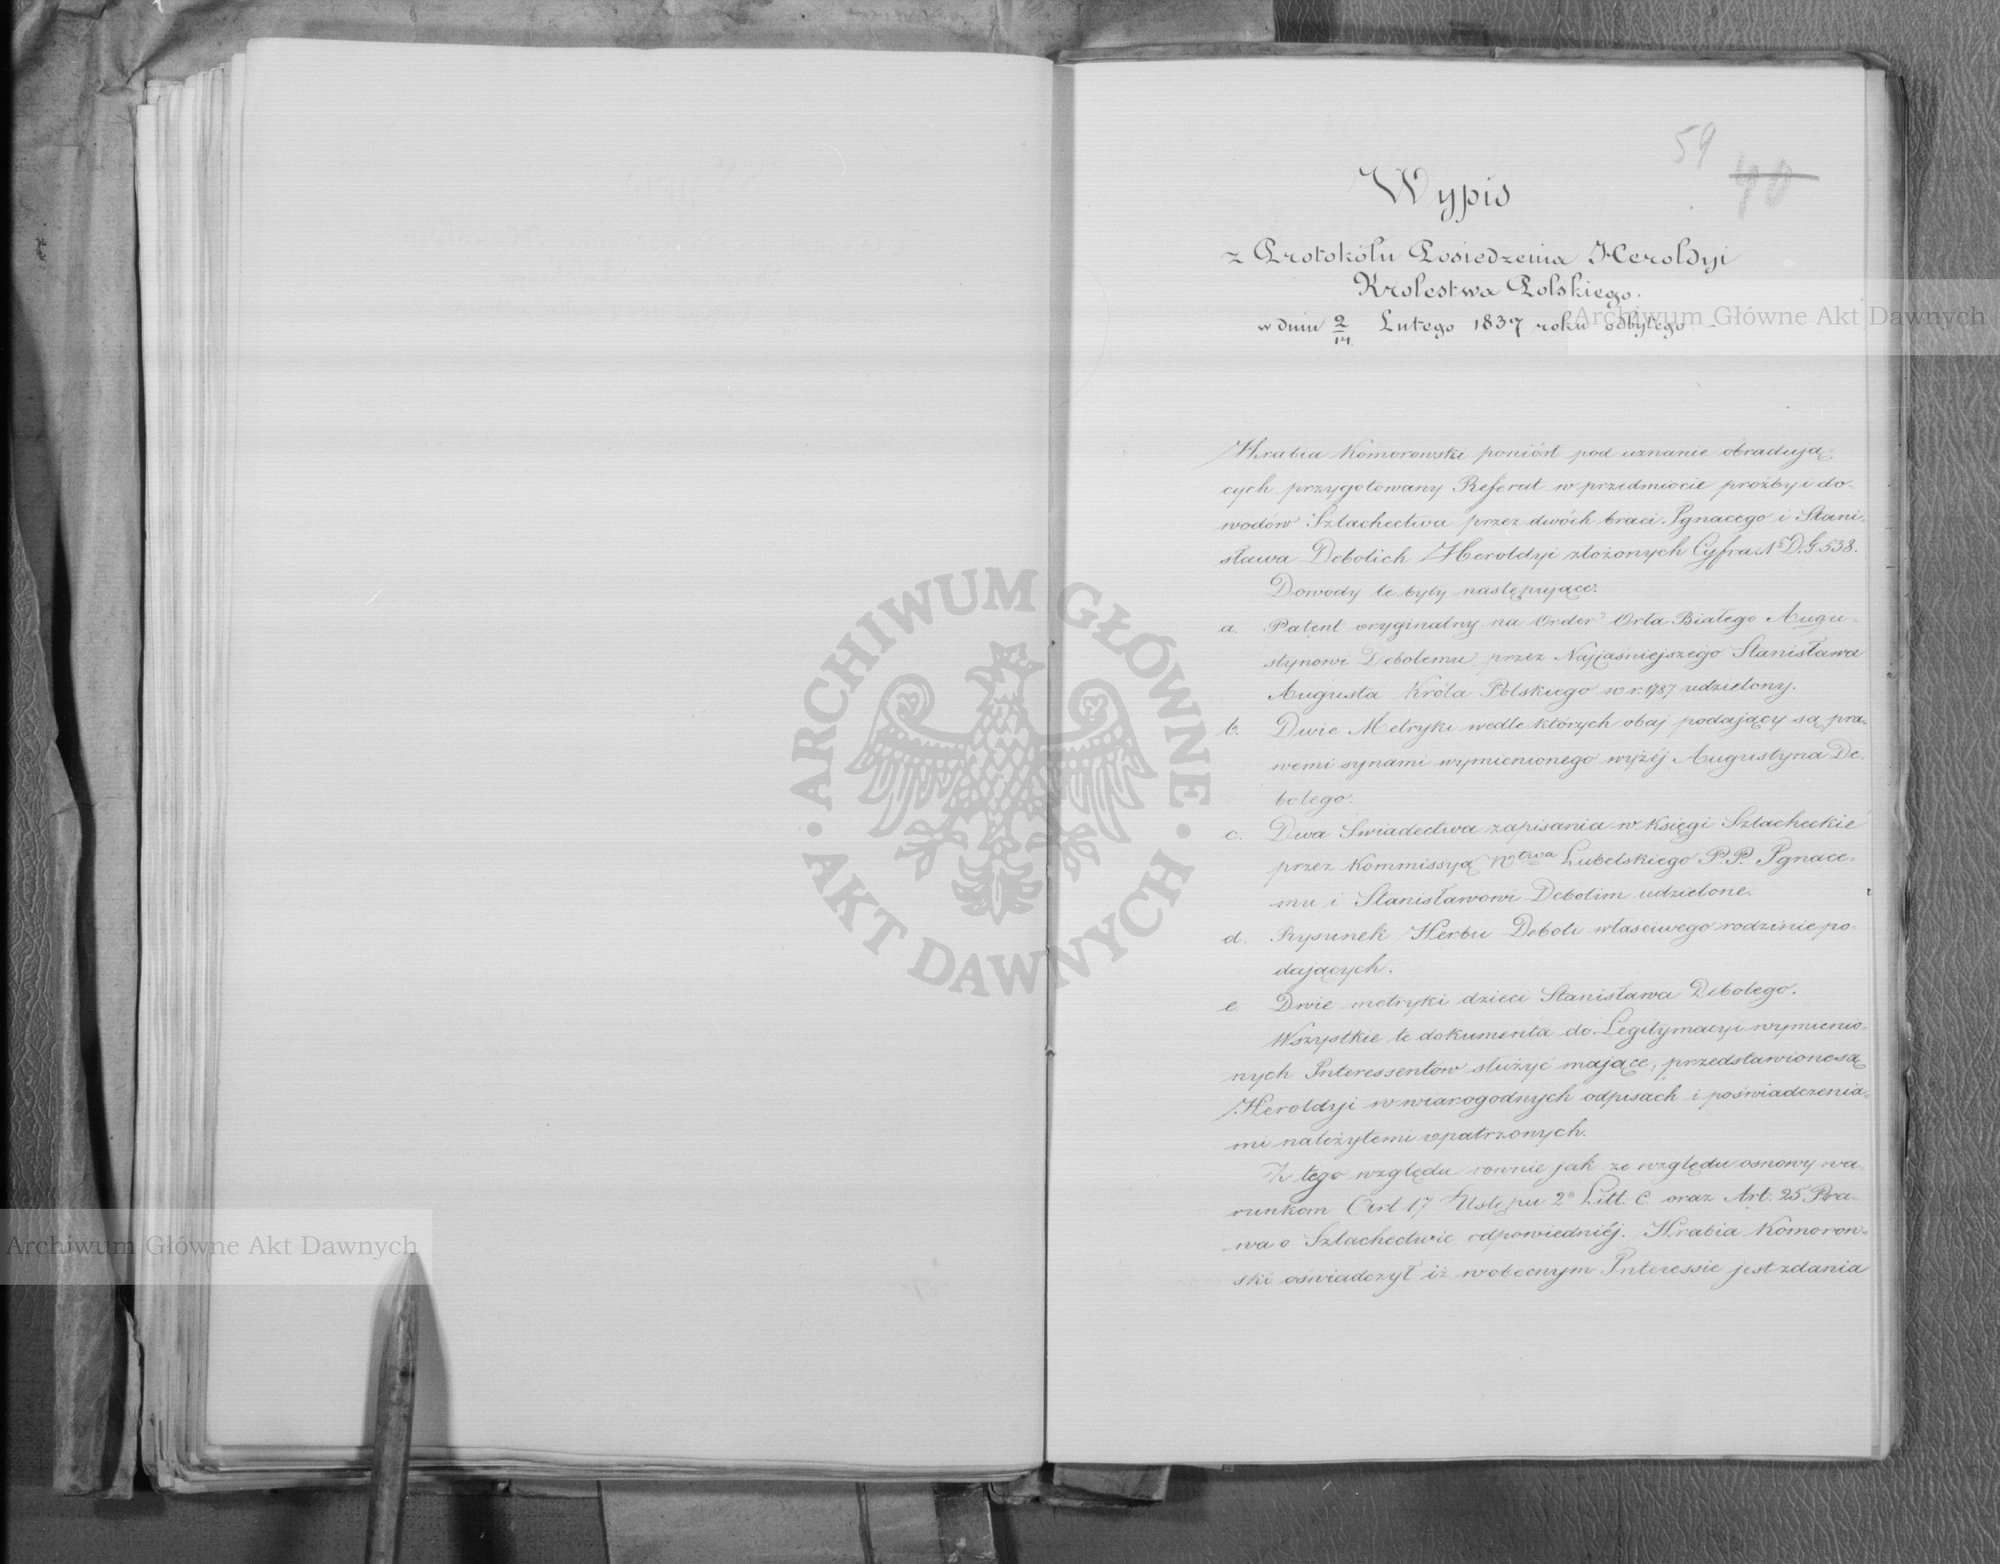 59
40
Wypis
z Protokólu Posiedzenia Heroldyi
Krolestwa Polskiego.
w dniu 2/14 Lutego 1837 roku odbytego
Hrabia Komorowski poniósł pod uznanie obradują-
cych przygotowany Referat w przedmiocie proźby i do-
wodów Szlachectwa przez dwóch braci Ignacego i Stani-
sława Debolich Heroldyi złożonych Cyfra Nr D.G. 538.
Dowody te były następujące:
a. Patent oryginalny na Order Orła Białego Augu-
stynowi Debolemu przez Najjaśniejszego Stanisława
Augusta Króla Polskiego w r. 1787 udzielony.
b. Dwie Metryki wedle których obaj podający są pra-
wemi synami wymienionego wyżéj Augustyna De-
bolego.
c. Dwa Swiadectwa zapisania w Księgi Szlacheckie
przez Kommissyą Wtwa Lubelskiego P.P. Ignace-
mu i Stanisławowi Debolim udzielone.
d. Rysunek Herbu Deboli właściwego rodzinie po-
dających.
e. Dwie metryki dzieci Stanisława Debolego.
Wszystkie te dokumenta do Legitymacyi wymienio-
nych Interessentów służyć mające, przedstawione są
Heroldyi w wiarogodnych odpisach i poświadczenia-
mi należytemi opatrzonych.
Z tego względu rownie jak ze względu osnowy wa-
runkom Art 17 Ustępu 2o Litt. C oraz Art: 25 Pra-
wa o Szlachectwie odpowiedniéj. Hrabia Komorow-
ski oświadczył iż w obecnym Interessie jest zdania
Archiwum Główne Akt Dawnych
Archiwum Główne Akt Dawnych
ARCHIWUM GŁÓWNE
AKT DAWNYCH